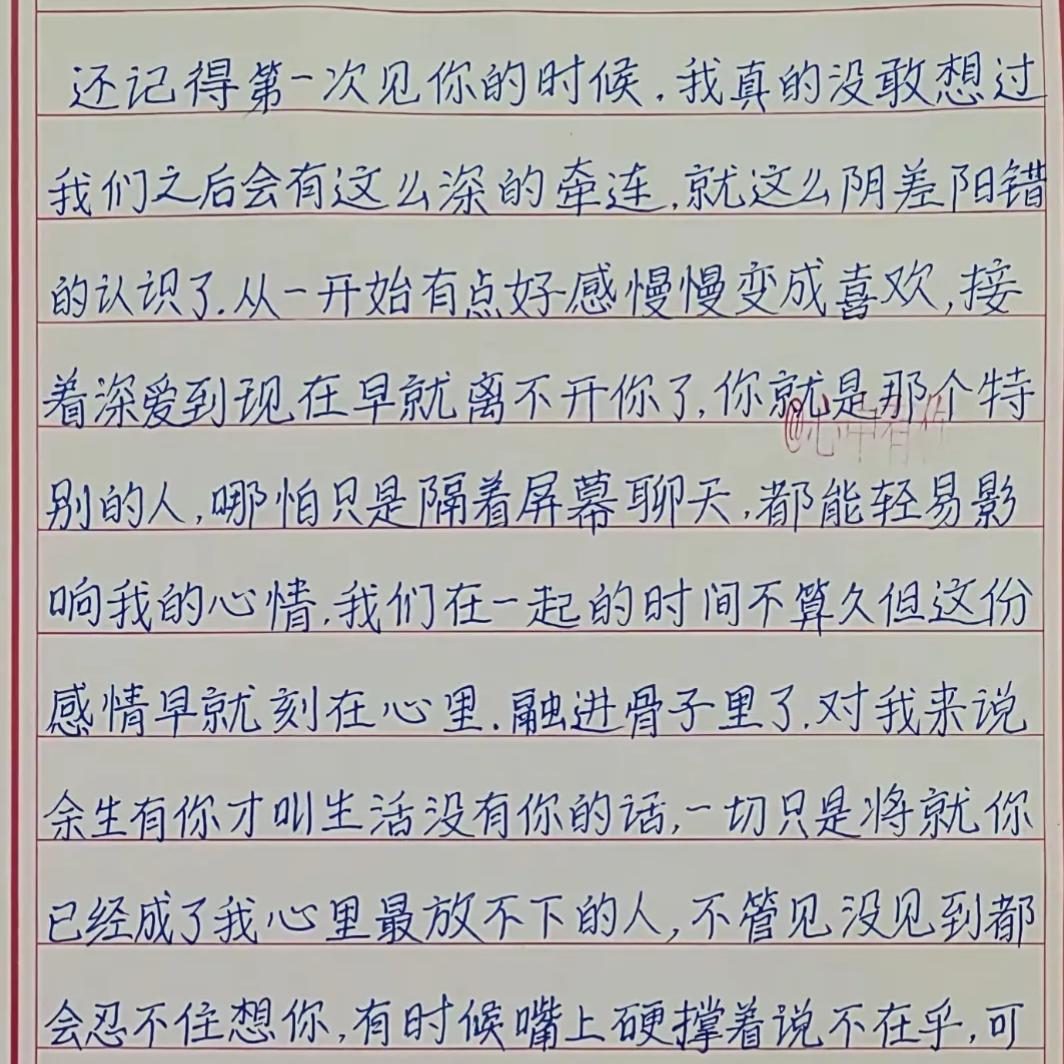 还记得第一次见你的时候.我真的没敢想过
我们之后会有这么深的牵连.就这么阴差阳错
的认识了.从一开始有点好感慢慢变成喜欢,接
着深爱到现在早就离不开你了,你就是那个特
别的人,哪怕只是隔着屏幕聊天,都能轻易影
响我的心情.我们在一起的时间不算久但这份
感情早就刻在心里.融进骨子里了.对我来说
余生有你才叫生活没有你的话,一切只是将就你
已经成了我心里最放不下的人,不管见没见到都
会忍不住想你,有时候嘴上硬撑着说不在乎,可